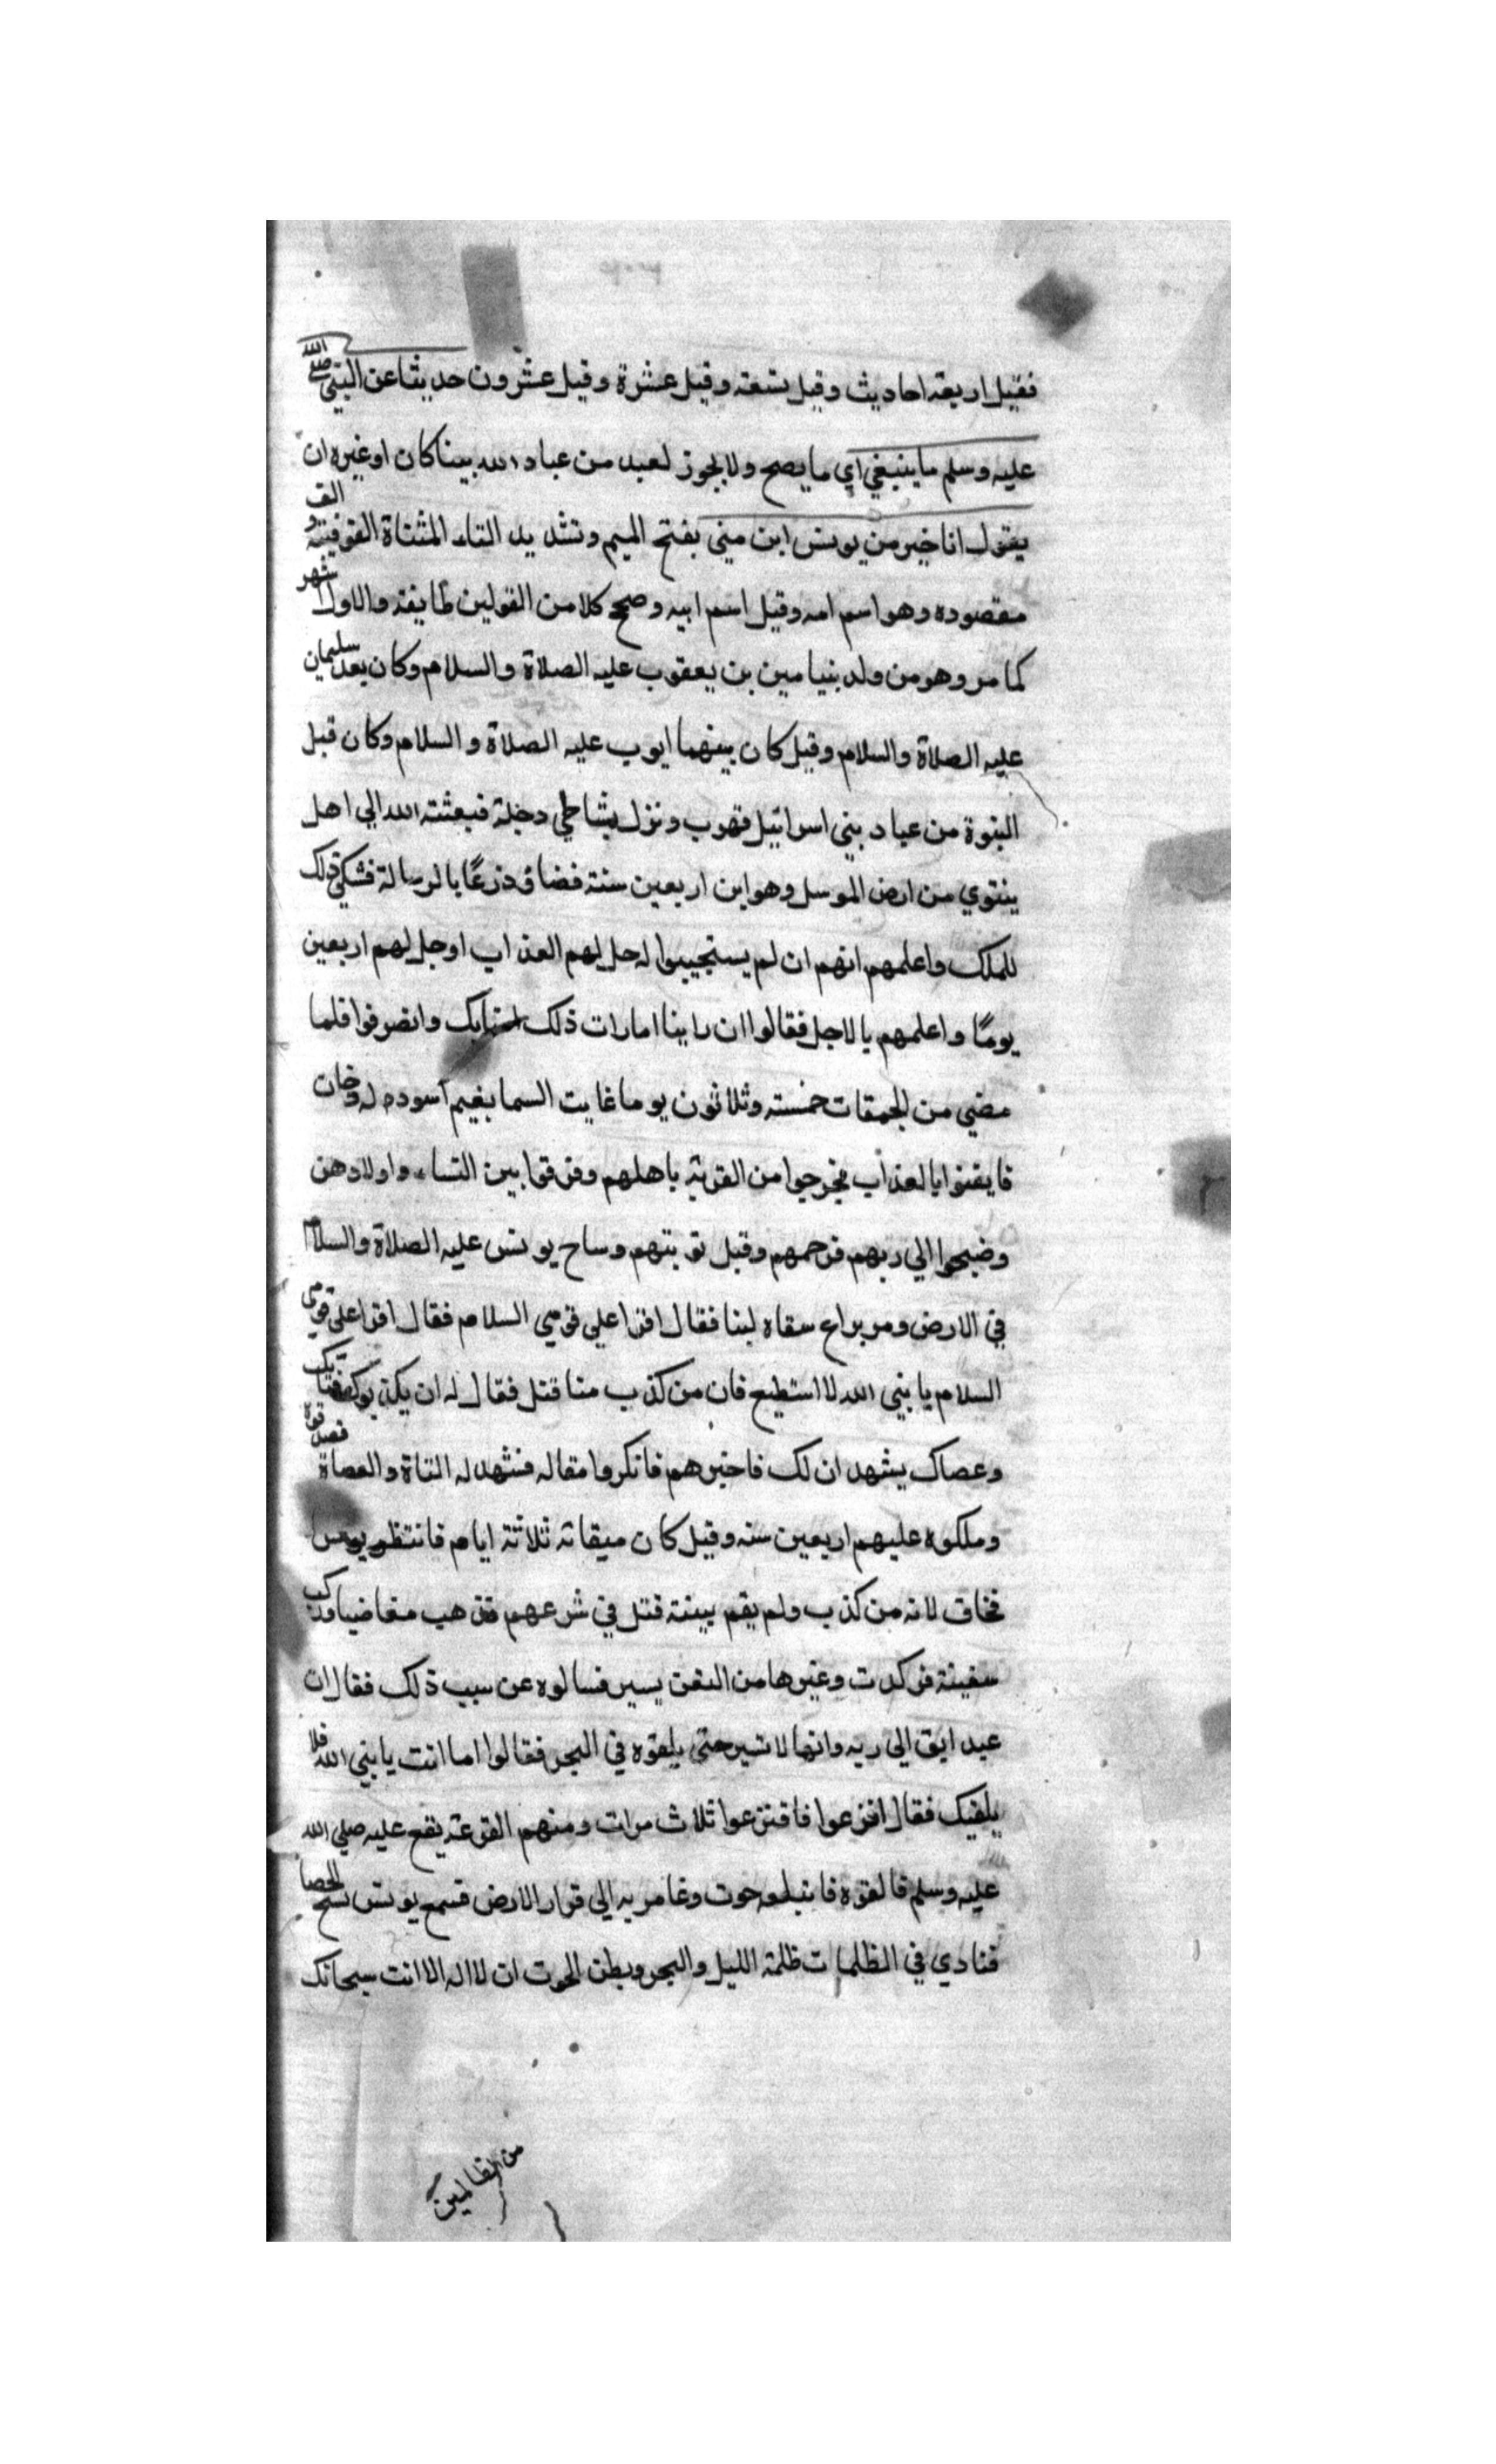 فقيل اربعة احاديث وقيل تسعة وقيل عشرة وقيل عشرون حديثا عن النبي صلى الله
عليه وسلم ما ينبغي اي ما يصح ولا يجوز لعبد من عباد الله بينا كان او غيره ان
يقول انا خير من يونس ابن متي بفتح الميم وتشديد التاء المثناة الفوقية والف
مقصوره وهو اسم امه وقيل اسم ابيه وصحح كلا من القولين طايفة والاول اشهر
كما مر وهو من ولد بنيامين بن يعقوب عليه الصلاة والسلام وكان بعد سليمان
عليه الصلاة والسلام وقيل كان بينهما ايوب عليه الصلاة والسلام وكان قبل
النبوة من عباد بني اسرائيل فهرب ونزل بشاطي دجلة فبعثته الله الي اهل
ينتوي من ارض الموسل وهو ابن اربعين سنة فضاق ذرعًا بالرسالة فشكي ذلك
للملك واعلمهم انهم ان لم يستجيبوا له حل لهم العذاب اوجل لهم اربعين
يومًا واعلمهم بالاجل فقالوا ان راينا امارات ذلك امنا بك وانصرفوا فلما
مضي من الميقات خمسة وثلاثون يوما غايت السما بغيم اسود له دخان
فايقنوا بالعذاب فخرجوا من القرية باهلهم وفرقوا بين النساء واولادهن
وضجوا الي ربهم فرحمهم وقبل توبتهم وساح يونس عليه الصلاة والسلام
في الارض ومر براع سقاه لبنا فقال اقرا علي قومي السلام فقال اقرا علي قومي
السلام يا نبي الله لا استطيع فان من كذب منا قتل فقال له ان يكذبوك فشاتك
وعصاك يشهدان لك فاخبرهم فانكروا مقاله فشهد له الشاة والعصاة فصدقوه
وملكوه عليهم اربعين سنه وقيل كان ميقاته ثلاثة ايام فانتظر يونس
فخاف لانه من كذب ولم يقم بينة قتل في شرعهم فذهب مغاضبا وركب
سفينة فركدت وغيرها من السفن يسير فسالوه عن سبب ذلك فقال ان
عبد ابق الي ربه وانها لا تسير حتى يلقوه في البحر فقالوا اما انت يا نبي الله فلا
يلقيك فقال اقترعوا فاقترعوا ثلاث مرات ومنهم القرعة يقع عليه صلي الله
عليه وسلم فالقوه فابتلعه حوت وغامر به الي قرار الارض فسمع يونس تسبيح الحصا
فنادي في الظلمات ظلمة الليل والبحر وبطن الحوت ان لا اله الا انت سبحانك
من الظالمين